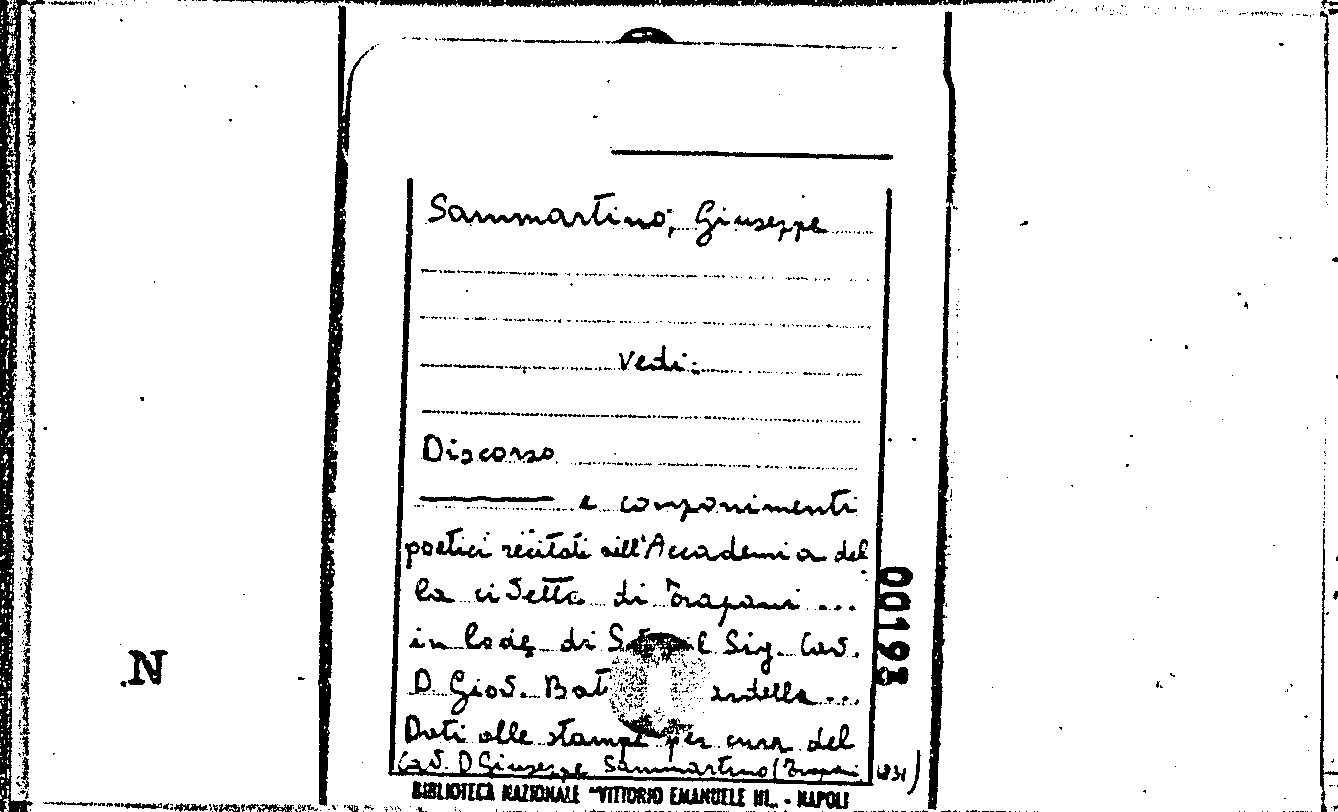 Sammartino, Giuseppe
Vedi:
Discorso
e componimenti
poetici recitati nell'Accademia del
la civetta di Trapani ...
in lode di S. il Sig. Cav.
D. Giov. Bat
Dati alle stampe per cura del
Cav. D Giuseppe Sammartino (Trapani, 1831)
00198
N
BIBLIOTECA NAZIONALE "VITTORIO EMANUELE III„ - NAPOLI